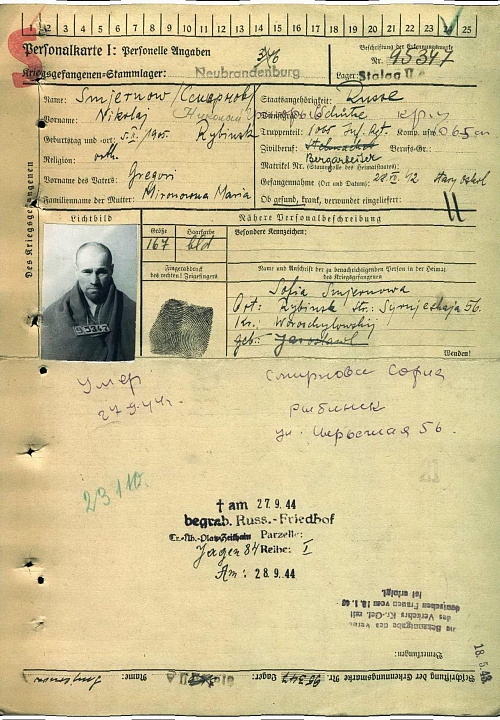 1 2 3 4 5 6 7 8 9 10 11 12 13 14 15 16 17 18 19 20 21 22 23 24 25
Personalkarte I: Personelle Angaben
Beschriftung der Erkennungsmarke
Nr. 95347
Kriegsgefangenen-Stammlager: Neubrandenburg
Lager: Stalag II A
Des Kriegsgefangenen
Name: Smjernow/
Staatsangehörigkeit: Russe
Vorname: Nikolaj
Dienstgrad: Schütze
Geburtstag und -ort: 1905 Rybinsk
Truppenteil: Inf. Rgt. Komp. usw.
Religion: orth.
Zivilberuf: Bergarbeiter Berufs-Gr.:
Matrikel Nr. (Stammrolle des Heimatstaates):
Vorname des Vaters: Gregori
Gefangennahme (Ort und Datum): 42 Stary Oskol
Familienname der Mutter: Mironowna Maria
Ob gesund, krank, verwundet eingeliefert:
Lichtbild
Nähere Personalbeschreibung
Größe Haarfarbe
Besondere Kennzeichen:
167 bld
Fingerabdruck
des rechten! Zeigefingers
Name und Anschrift der zu benachrichtigenden Person in der Heimat
des Kriegsgefangenen
95347
Sofia Smjernowa
Ort: Rybinsk Str.: 56.
Worochylowskij
Jaroslawl
Wenden!
Умер
27 9 44г.
Смирнова София
Рыбинск
ул. 56.
23.110.
† am 27.9.44
begrab. Russ.-Friedhof
Tr.-Üb.-Platz Zeithain Parzelle:
Jagen 84 Reihe: I
Am: 28.9.44
Die Bekanntgabe des Verbots
des Verkehrs Kr.-Gef. mit
deutschen Frauen vom 10.1.40
ist erfolgt.
18.5.43
Bemerkungen:
Beschriftung der Erkennungsmarke Nr. 95347 Lager: Stalag II A Name: